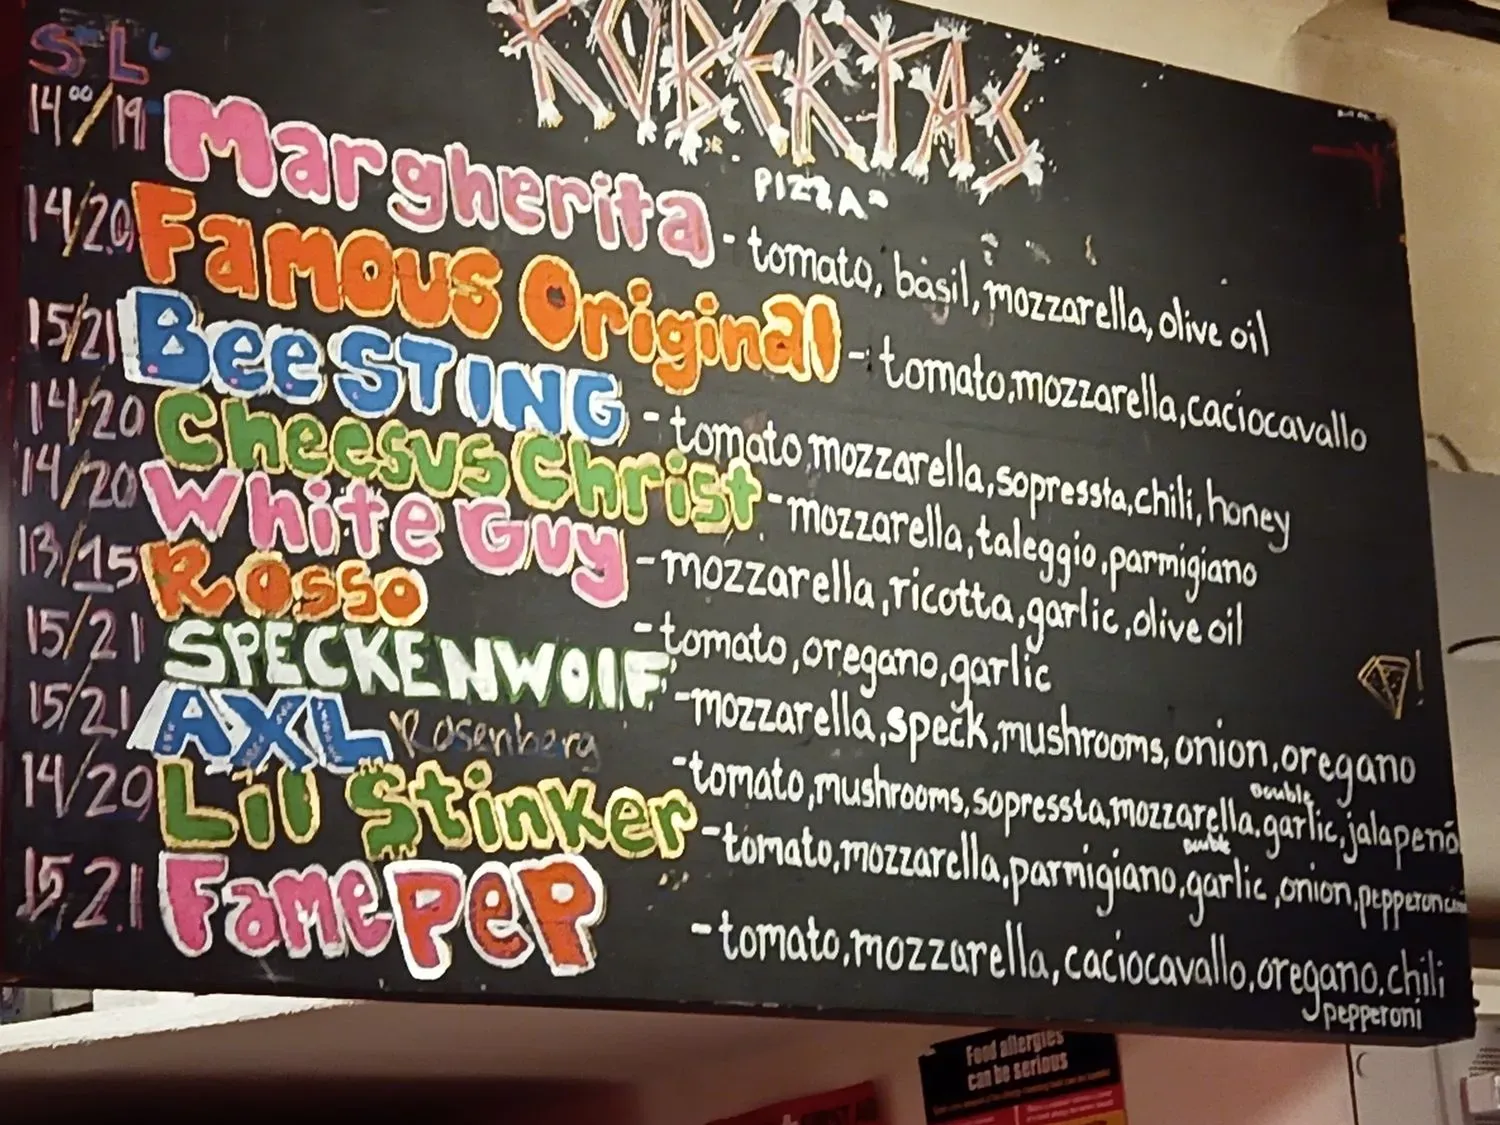 ROBERTAS
PIZZA
S L
14⁰⁰/19 Margherita - tomato, basil, mozzarella, olive oil
14/20 Famous Original - tomato, mozzarella, caciocavallo
15/21 Bee STING - tomato, mozzarella, sopressta, chili, honey
14/20 Cheesus Christ - mozzarella, taleggio, parmigiano
14/20 White Guy - mozzarella, ricotta, garlic, olive oil
13/15 Rosso - tomato, oregano, garlic
15/21 SPECKENWOlF - mozzarella, speck, mushrooms, onion, oregano
15/21 AXL Rosenberg - tomato, mushrooms, sopressta, mozzarella, double garlic, jalapeño
14/20 Lil Stinker - tomato, mozzarella, parmigiano, double garlic, onion, pepperoncini
15/21 Fame PeP - tomato, mozzarella, caciocavallo, oregano, chili
pepperoni
Food allergies
can be serious